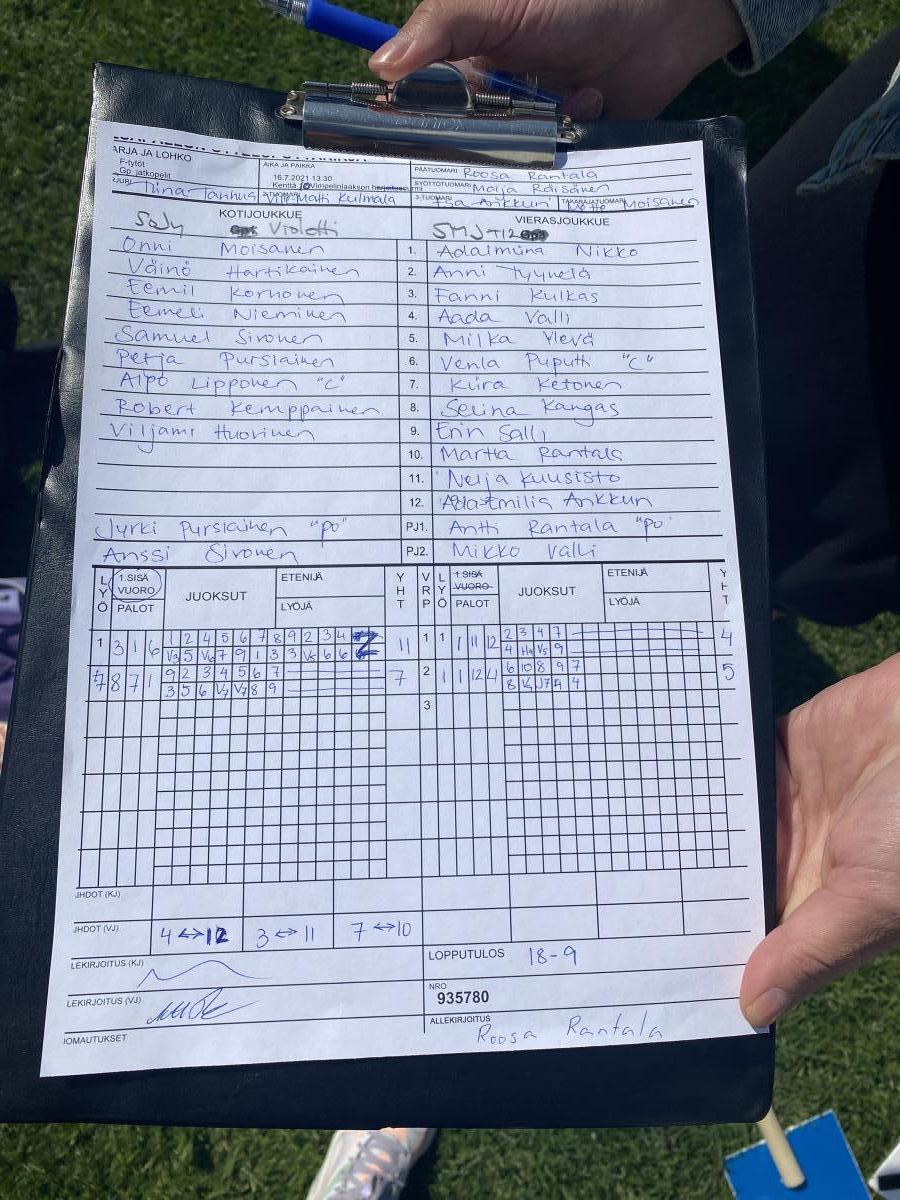 ARJA JA LOHKO
F-tytöt
Gp jatkopelit
AIKA JA PAIKKA
16.7.2021 13:30
Kenttä 10 Vimpelinlaakson
PÄÄTUOMARI Roosa Rantala
SYÖTTÖTUOMARI Maija Räisänen
Tiina Tanhua 2-TUOMARI Matti Kulmala
3-TUOMARI Ankkuri TAKARAJATUOMARI Moisanen
KOTIJOUKKUE VIERASJOUKKUE
Violetti
Onni Moisanen 1. Adalmiina Nikko
Väinö Hartikainen 2. Anni Tyynelä
Eemil Korhonen 3. Fanni Kulkas
Eemeli Nieminen 4. Aada Valli
Samuel Sironen 5. Milka Ylevä
Petja Pursiainen 6. Venla Puputti "C"
Alpo Lipponen "C" 7. Kiira Ketonen
Robert Kemppainen 8. Selina Kangas
Viljami Huovinen 9. Erin Salli
10. Martta Rantala
11. Neija Kuusisto
12. Ada-Emilia Ankkuri
Jyrki Pursiainen "PO" PJ1. Antti Rantala "PO"
Anssi Sironen PJ2. Mikko Valli
LYÖ 1.SISÄ VUORO PALOT JUOKSUT ETENIJÄ LYÖJÄ YHT VRP LYÖ 1.SISÄ VUORO PALOT JUOKSUT ETENIJÄ LYÖJÄ YHT
1 3 1 6 1 2 4 5 6 7 8 9 2 3 4 2 11 1 1 1 11 12 2 3 4 7 4
V3 5 V6 7 9 1 3 3 V5 6 6 4 H4 V5 9
7 8 7 1 9 2 3 4 5 6 7 7 2 1 1 12 4 6 10 8 9 7 5
3 5 6 V7 V7 8 9
3
JHDOT (KJ)
JHDOT (VJ) 4 ↔ 12 3 ↔ 11 7 ↔ 10
LEKIRJOITUS (KJ) LOPPUTULOS 18-9
LEKIRJOITUS (VJ) NRO
935780
IOMAUTUKSET ALLEKIRJOITUS
Roosa Rantala